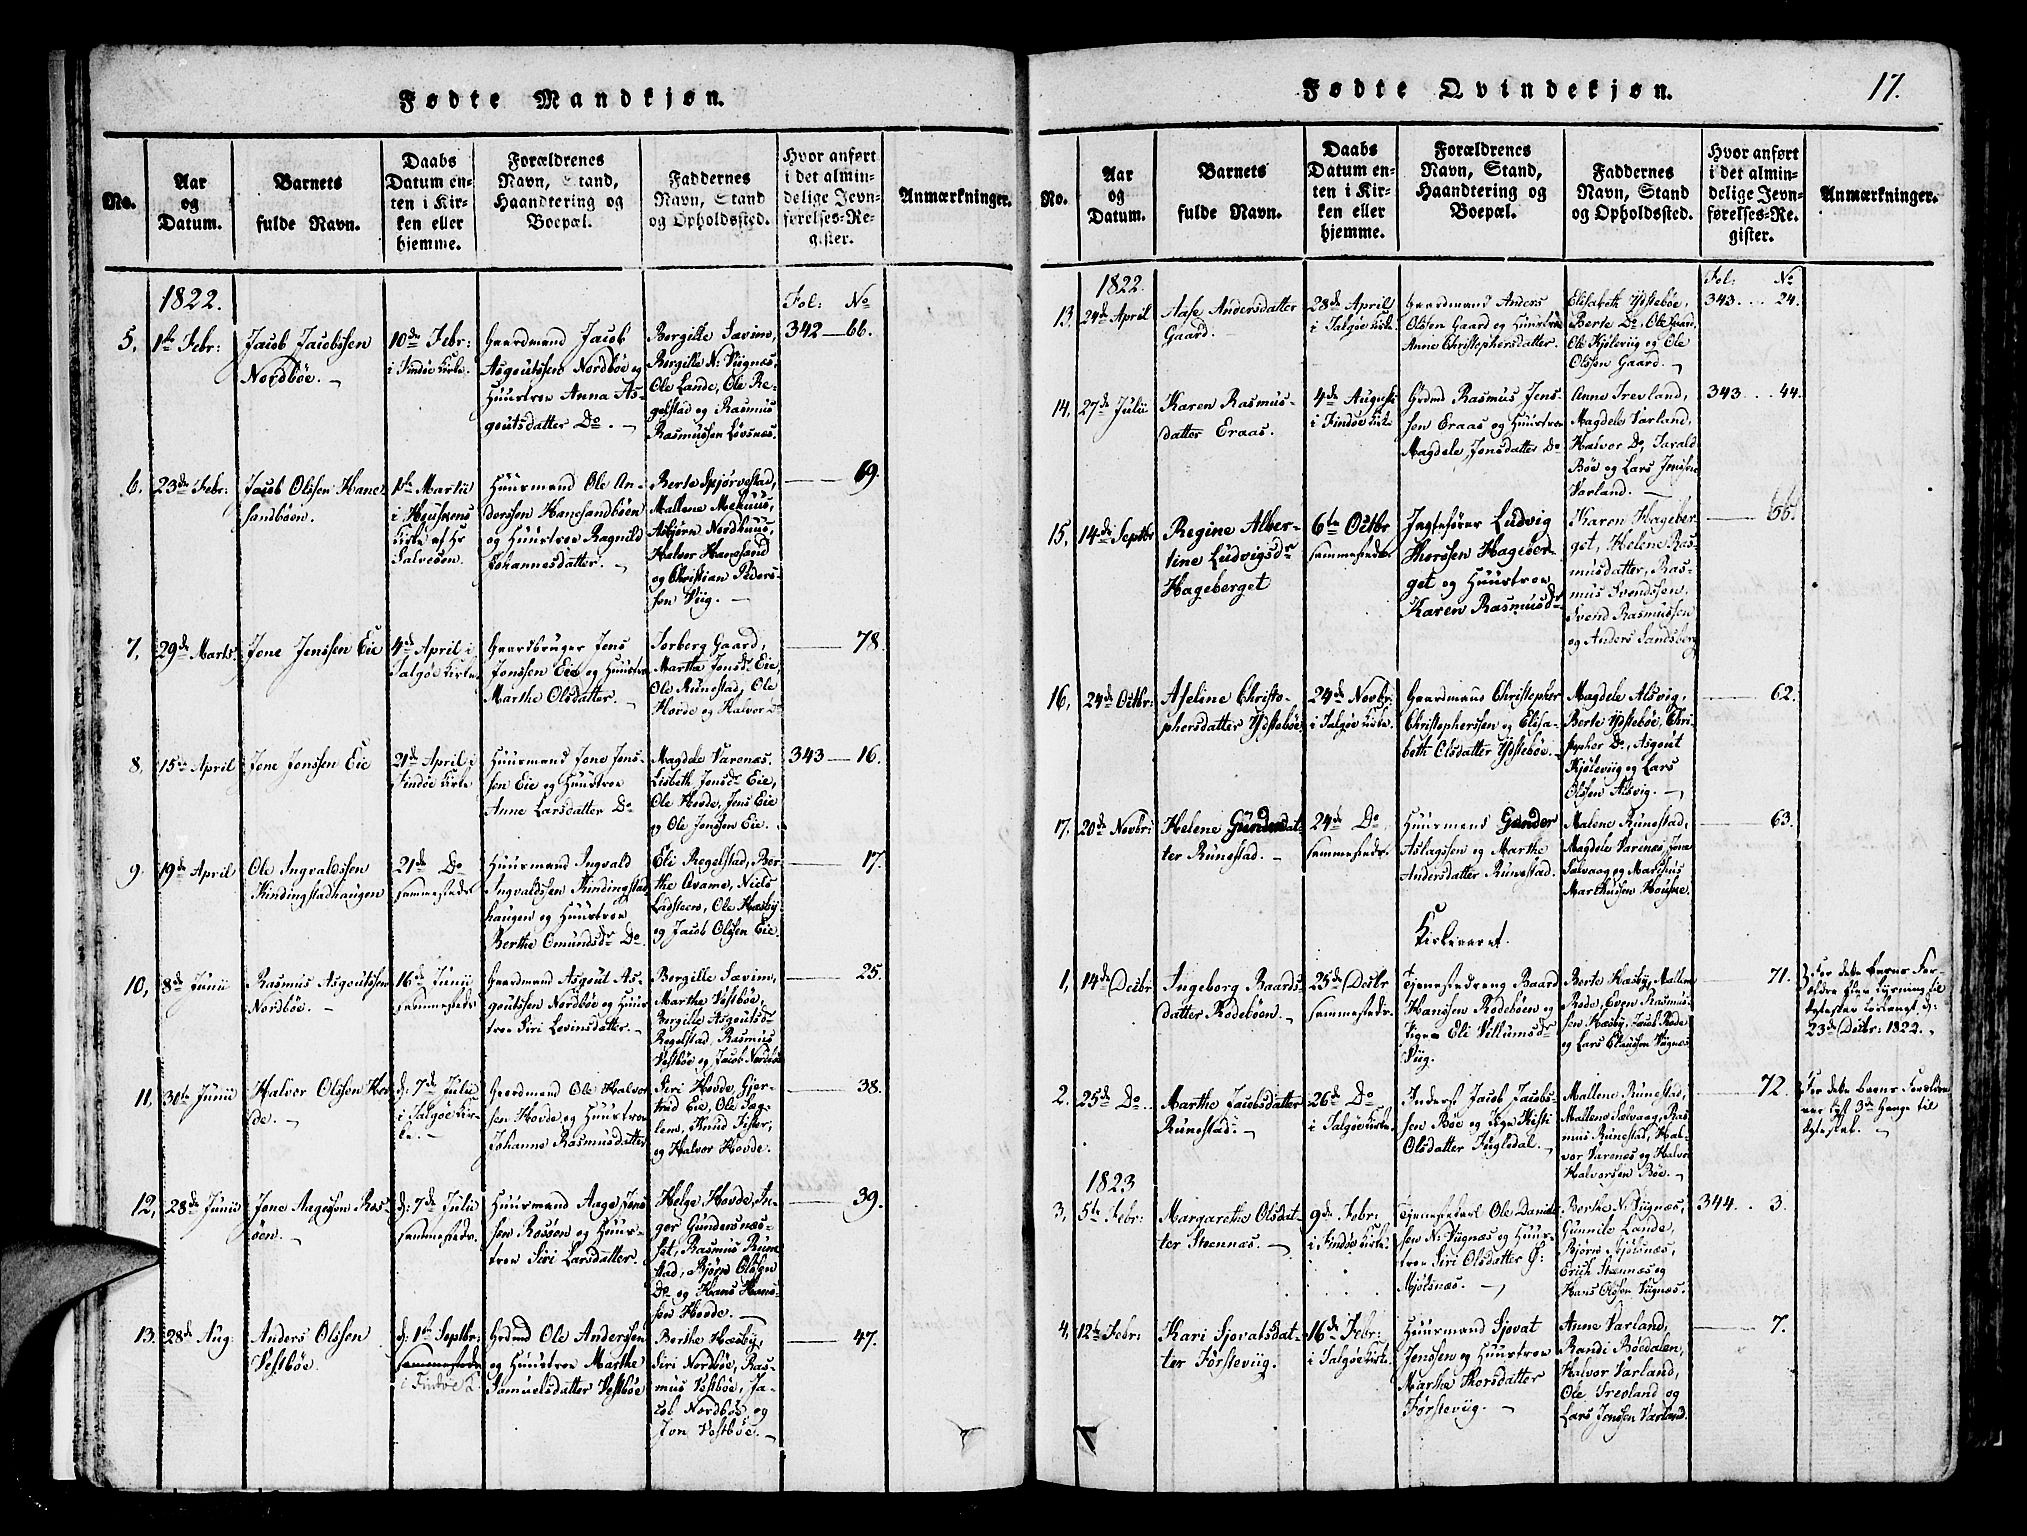 Fødte Mandkjøn.
No.
Aar
og
Datum.
Barnets
fulde Navn.
Daabs
Datum en-
ten i Kir-
ken eller
hjemme.
Forældrenes
Navn, Stand,
Haandtering og
Boepæl.
Faddernes
Navn, Stand
og Opholdssted.
Hvor anført
i det almin-
delige Jevn-
førelses-Re-
gister.
Anmærkninger.
1822.
Fol: No
5,
1ste Febr:
Jacob Jacobssen
Nordbøe.
10de Febr:
i Findøe Kirke.
Gaardmand Jacob
Asgoutssen Nordbøe og
Huustroe Anna As-
goutsdatter Do.
Bergille Sævim,
Bergille N: Viignæs,
Ole Lande, Ole Re-
gelstad og Rasmus
Rasmussen Løvsnæs.
342 66.
6,
23de Febr:
Jacob Olssen Hane-
sandbøen.
1ste Martii
i Heuskens
Kirke af Hr
Salvesen.
Huusmand Ole An-
derssen Hanesandbøen
og Huustroe Ragnild
Johannesdatter.
Berte Spjørvestad,
Mallene Meehuus,
Asbjørn Nordhuus,
Halvor Hanesand
og Christian Peders-
sen Viig.
69.
7,
29de Marts.
Jone Jenssen Eie
4de April i
Talgøe Kirke
Gaardbruger Jens
Jonssen Eie og Huustroe
Marthe Olsdatter.
Torborg Gaard,
Martha Jonsdr Eie
Ole Runestad, Ole
Hovde og Halvor Do
78.
8,
15de April
Jone Jonssen Eie
21de April i
Findøe Kirke
Huusmand Jone Jons-
sen Eie og Huustroe
Anne Larsdatter Do
Magdele Varenæs.
Lisbeth Jonsdr Eie,
Ole Hovde, Jens Eie
og Ole Jonssen Eie.
343 16.
9.
19de April
Ole Ingvaldssen
Kindingstadhaugen
21de Do
sammesteds
Huusmand Ingvald
Ingvaldssen Kindingstad
haugen og Huustroe
Berthe Omundsdr Do.
Eli Regelstad, Ber-
the Avame, Niels
Ladsteen, Ole Hæsby
og Jacob Olssen Eie.
17.
10,
8de Junii
Rasmus Asgoutssen
Nordbøe.
16de Junii
sammesteds
Gaardmand Asgout As-
goutssen Nordbøe og Huus-
troe Siri Levinsdatter.
Bergille Sævim,
Marthe Vestbøe,
Bergille Asgoutsdr
Regelstad, Rasmus
Vestbøe og Jacob Nordbøe
25.
11,
30te Junii
Halvor Olssen Hov-
de.
d: 7de Julii
i Talgøe Kir-
ke.
Gaardmand Ole Halvor-
sen Hovde og Huustroe
Johanne Rasmusdatter
Siri Hovde, Gjer-
trud Eie, Ole Jæg-
lem, Knud Fister,
og Halvor Hovde.
38.
12,
28de Junii
Jone Aagessen Ros-
søen.
d: 7de Julii
sammesteds.
Huusmand Aage Jons-
sen Rossøen og Huus-
troe Siri Larsdatter.
Helge Hovde, In-
ger Gundersnæs-
set, Rasmus Rune
stad, Bjørn Olssen
Do og Hans Hans-
sen Hovde.
39.
13.
28de Aug.
Anders Olssen
Vestbøe.
d: 1ste Septbr:
sammesteds
i Findøe K
Grdmd Ole Anderssen
og Huustroe Marthe
Samuelsdatter Vestbøe
Berthe Hæsbye,
Siri Nordbøe, Ras-
mus Vestbøe, Ja-
cob Nordbøe og
Jon Vestbøe.
47.
Fødte Qvindekjøn.
17.
No.
Aar
og
Datum.
Barnets
fulde Navn.
Daabs
Datum en-
ten i Kir-
ken eller
hjemme.
Forældrenes
Navn, Stand,
Haandtering og
Boepæl.
Faddernes
Navn, Stand
og Opholdssted.
Hvor anført
i det almin-
delige Jevn-
førelses-Re-
gister.
Anmærkninger.
1822.
Fol: No
13,
24de April
Aase Andersdatter
Gaard.
28de April
i Talgøe Kirke.
Gaardmand Anders
Olssen Gaard og Huustroe
Anne Christophersdatter.
Elisabeth Ydstebøe,
Berte Do, Ole Gaard,
Ole Kjøleviig og Ole
Olssen Gaard.
343 24.
14,
27de Julii
Karen Rasmus-
datter Eraas.
4de August
i Findøe Kirke
Grdmd Rasmus Jens-
sen Eraas og Huustroe
Magdele Jonsdatter Do
Anne Trevland,
Magdele Varland,
Halvor Do, Tarald
Bøe og Lars Jenssen
Varland.
343 44.
15,
14de Septbr
Regine Alber-
tine Ludvigsdr
Hageberget
6te Octbr
sammesteds.
Ingtefører Ludvig
Thorssen Hageber-
get og Huustroe
Karen Rasmusdr
Karen Hageber-
get, Helene Ras-
musdatter, Ras-
mus Svendssen,
Svend Rasmussen
og Anders Sandsberg
55.
16,
24de Octbr:
Aseline Christo-
phersdatter Ydstebøe
24de Novbr:
i Talgøe Kirke.
Gaardmand Christopher
Christopherssen og Elisa-
beth Olsdatter Ydstebøe.
Magdele Alsvig,
Berte Ydstebøe, Chri-
stopher Do, Asgout
Kjøleviig og Lars
Olssen Alsvig.
62.
17,
20de Novbr:
Helene Gundersdat-
ter Runestad.
24de Do
sammesteds.
Huusmand Gunder
Aslagssen og Marthe
Andersdatter Runestad.
Malene Runestad,
Magdele Varenæs, Jone
Salvaag og Marchus
Marthussen Houske.
63.
Kirkeaaret.
1,
14de Decbr
Ingeborg Baards-
datter Rodebøen.
25de Decbr
sammesteds.
Tjenestedreng Baard
Hanssen Rodebøen og
Pige Eli Villumsdr
Viig.
Berte Hæsby, Mallene
Rode, Even Rasmus-
sen Hæsby, Jacob Rode
og Lars Clausssen Viignæs
71.
For dette barns For-
ældre
23de Decbr: 1822.
2.
25de Do
Marthe Jacobsdatter
Runestad.
26de Do
i Talgøe Kirke.
Inderst Jacob Jacobs-
sen Bøe og Pige Kisti
Olsdatter Fugledal.
Mallene Runestad,
Mallene Salvaag, Ras-
mus Runestad, Hal-
vor Varenæs og Halvor
Halvorsen Bøe.
72.
For dette barns Forældre
er lyst 3de Gange til
Egteskab.
1823
3,
5te Febr:
Margarethe Olsdat-
ter Steennæs.
9de Febr:
i Findøe Kirke.
Tjenestekarl Ole Daniels-
sen N: Viignæs og Huus-
troe Siri Olsdatter
Mjølsnæs.
Berthe N: Viignæs,
Gunnile Lande,
Bjørn Mjølsnæs,
Erich Steennæs og
Hans Olssen Viignæs.
344 3.
4,
12te Febr:
Kari Sjovatsdat-
ter Førsteviig.
16de Febr:
i Talgøe Kirke.
Huusmand Sjovat
Jenssen og Huustroe
Martha Thorsdatter
Førsteviig.
Anne Varland,
Randi Bøedalen,
Halvor Varland,
Ole Trevland og
Lars Jenssen Varland.
7.